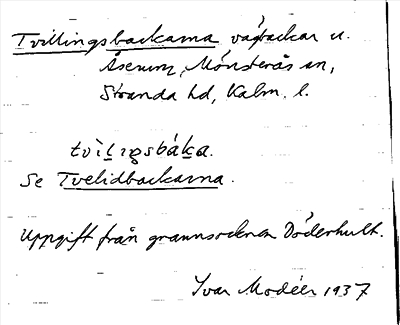 Tvillingsbackarna vägbackar u.
Åserum, Mönsterås sn,
Stranda hd, Kalm. l.
tvìlıŋsbáka.
Se Tvelidbackarna.
Uppgift från grannsocknen Döderhult.
Ivar Modéer 1937